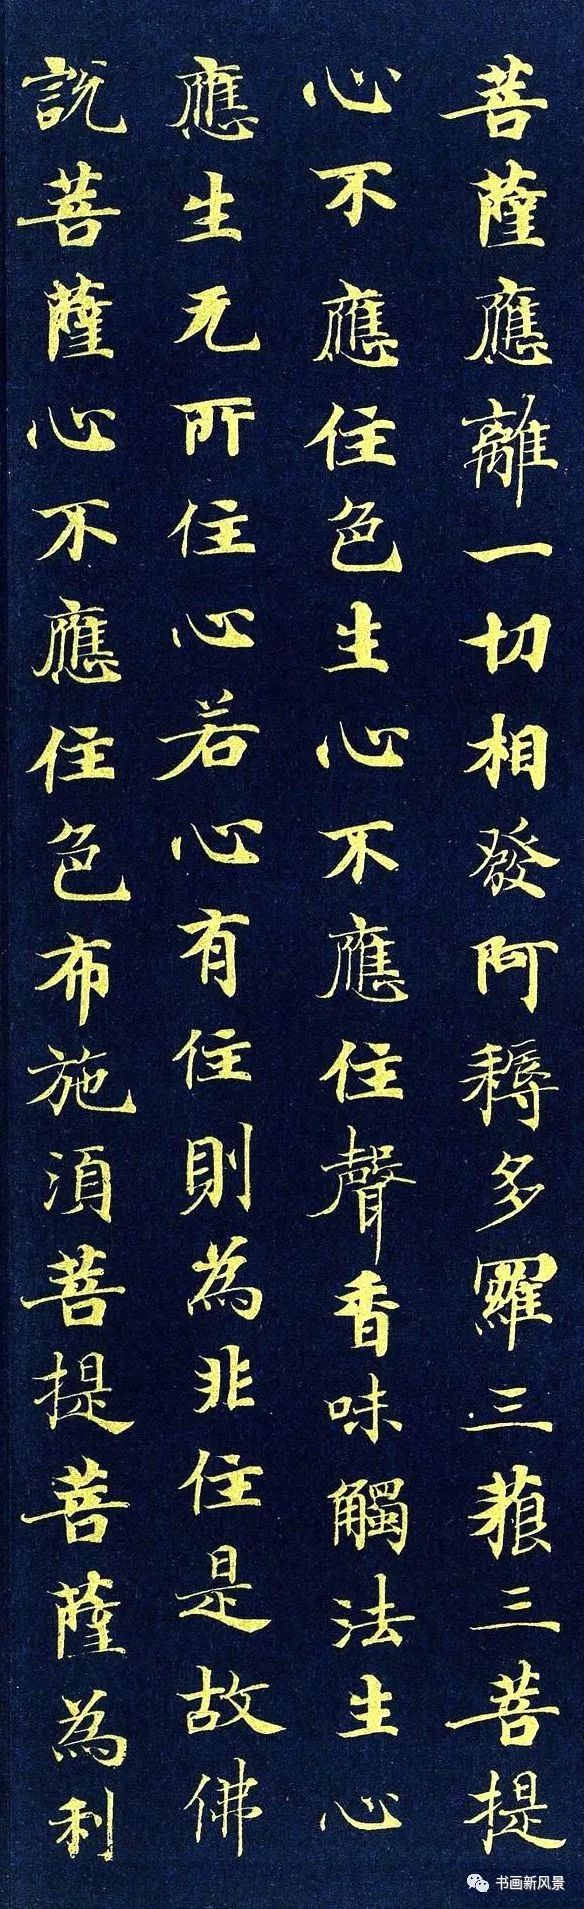 菩薩應離一切相發阿耨多羅三藐三菩提
心不應住色生心不應住聲香味觸法生心
應生无所住心若心有住則為非住是故佛
說菩薩心不應住色布施須菩提菩薩為利
书画新风景